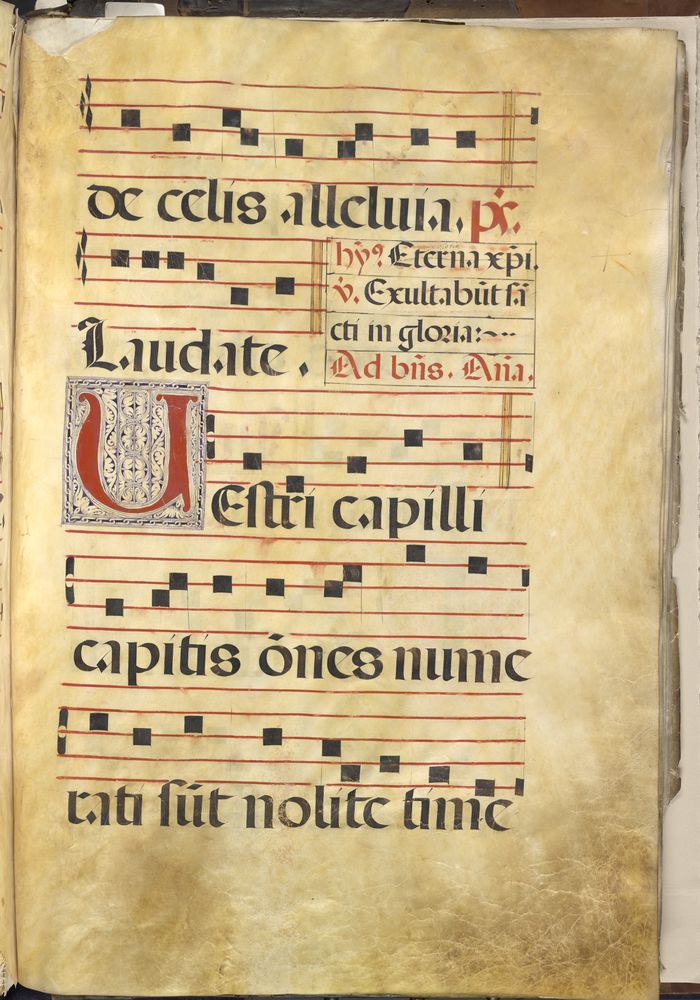 de celis alleluia. p̄s.
Laudate.
hỹ? Eterna xp̄i.
v̄. Exultabūt sā
cti in gloria:~··
Ad bn̄s. An̄a.
UEstri capilli
capitis ōnes nume
rati sūt nolite time